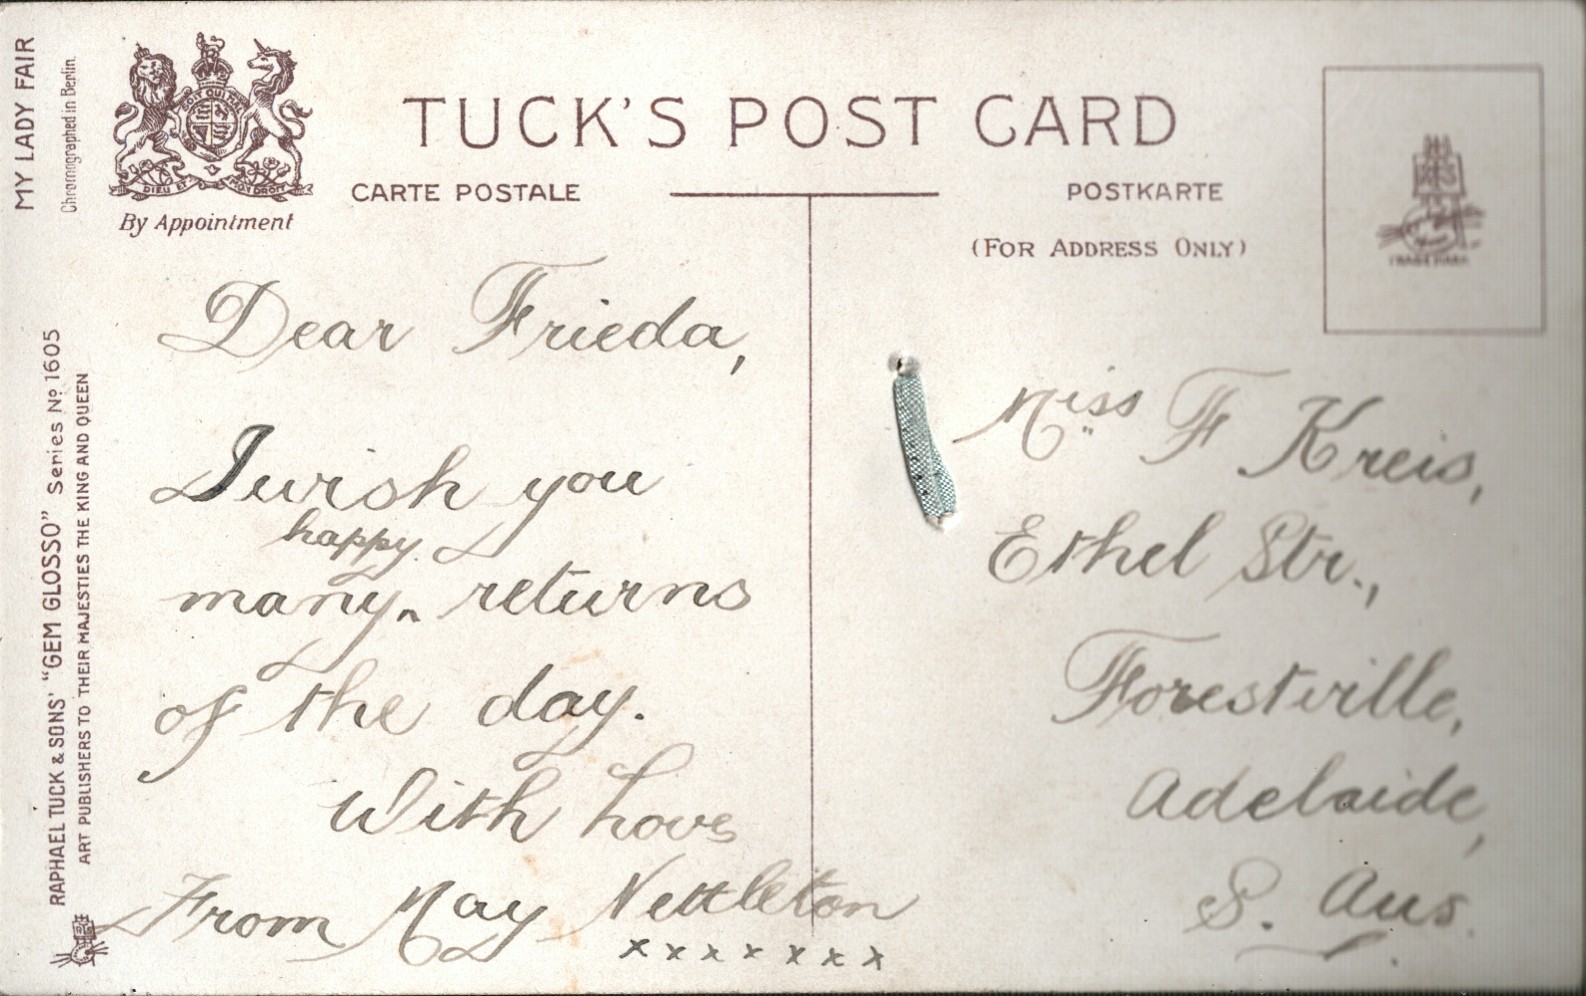 MY LADY FAIR
Chromographed in Berlin.
RAPHAEL TUCK & SONS' "GEM GLOSSO" Series No 1605
ART PUBLISHERS TO THEIR MAJESTIES THE KING AND QUEEN
DIEU ET MON DROIT
By Appointment
TUCK'S POST CARD
CARTE POSTALE
POSTKARTE
(FOR ADDRESS ONLY)
TRADE MARK
Dear Frieda,
I wish you
happy
many ^ returns
of the day.
With Love
From May Nettleton
x x x x x x x
Miss F Kreis,
Ethel Str.,
Forestville,
Adelaide,
S. Aus.